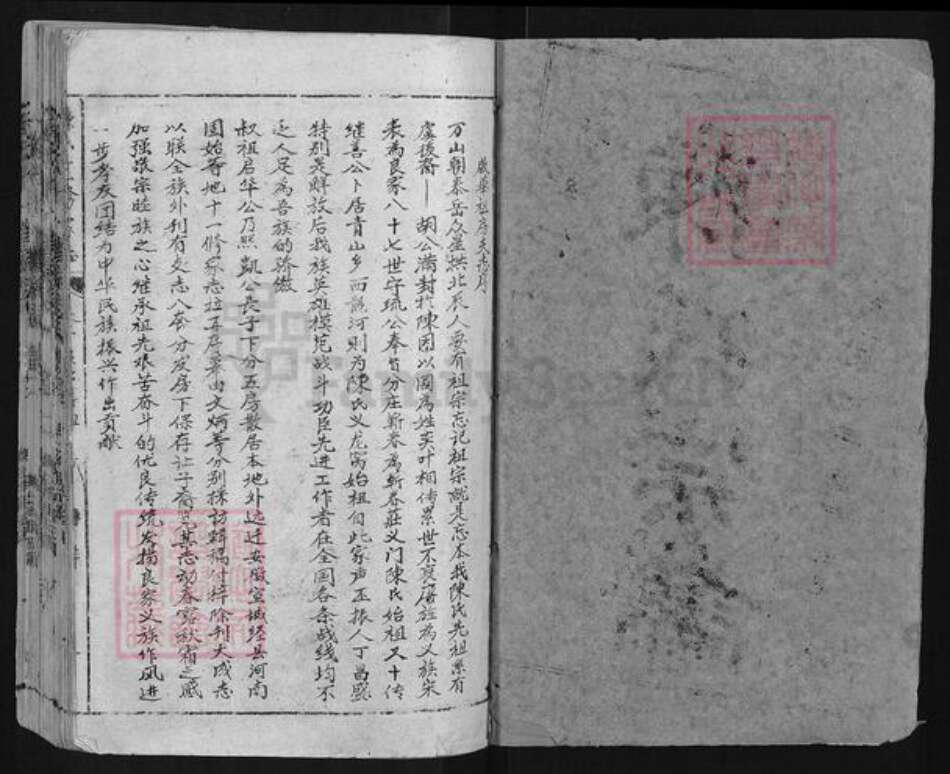 啟華祖房文志序
万山朝泰岳众星拱北辰人要有祖宗忘记祖宗就是忘本我陳氏先祖系有
虞後裔——胡公滿封於陳因以國為姓奕叶相传累世不衰唐旌為义族宋
表為良家八十七世守琉公奉旨分庄蕲春為蕲春莊义门陳氏始祖又十传
继善公卜居青山乡西龍河则为陳氏义龙窩始祖自此家声丕振人丁昌盛
特别是解放后我族英雄模范战斗功臣先进工作者在全国各条战线均不
乏人足為吾族的骄傲
叔祖启华公乃熙凱公長子下分五房散居本地外远迁安徽宣城经县河南
固始等地十一修家志在 由文炳等分别採访辑稿付梓除刊大成志
以联全族外刊有支志八套分发房下保存让子裔览其志动春露秋霜之感
加强敬宗睦族之心继承祖先艰苦奋斗的优良传统发揚良家义族作风进
一步孝友团结为中华民族振兴作出贡献